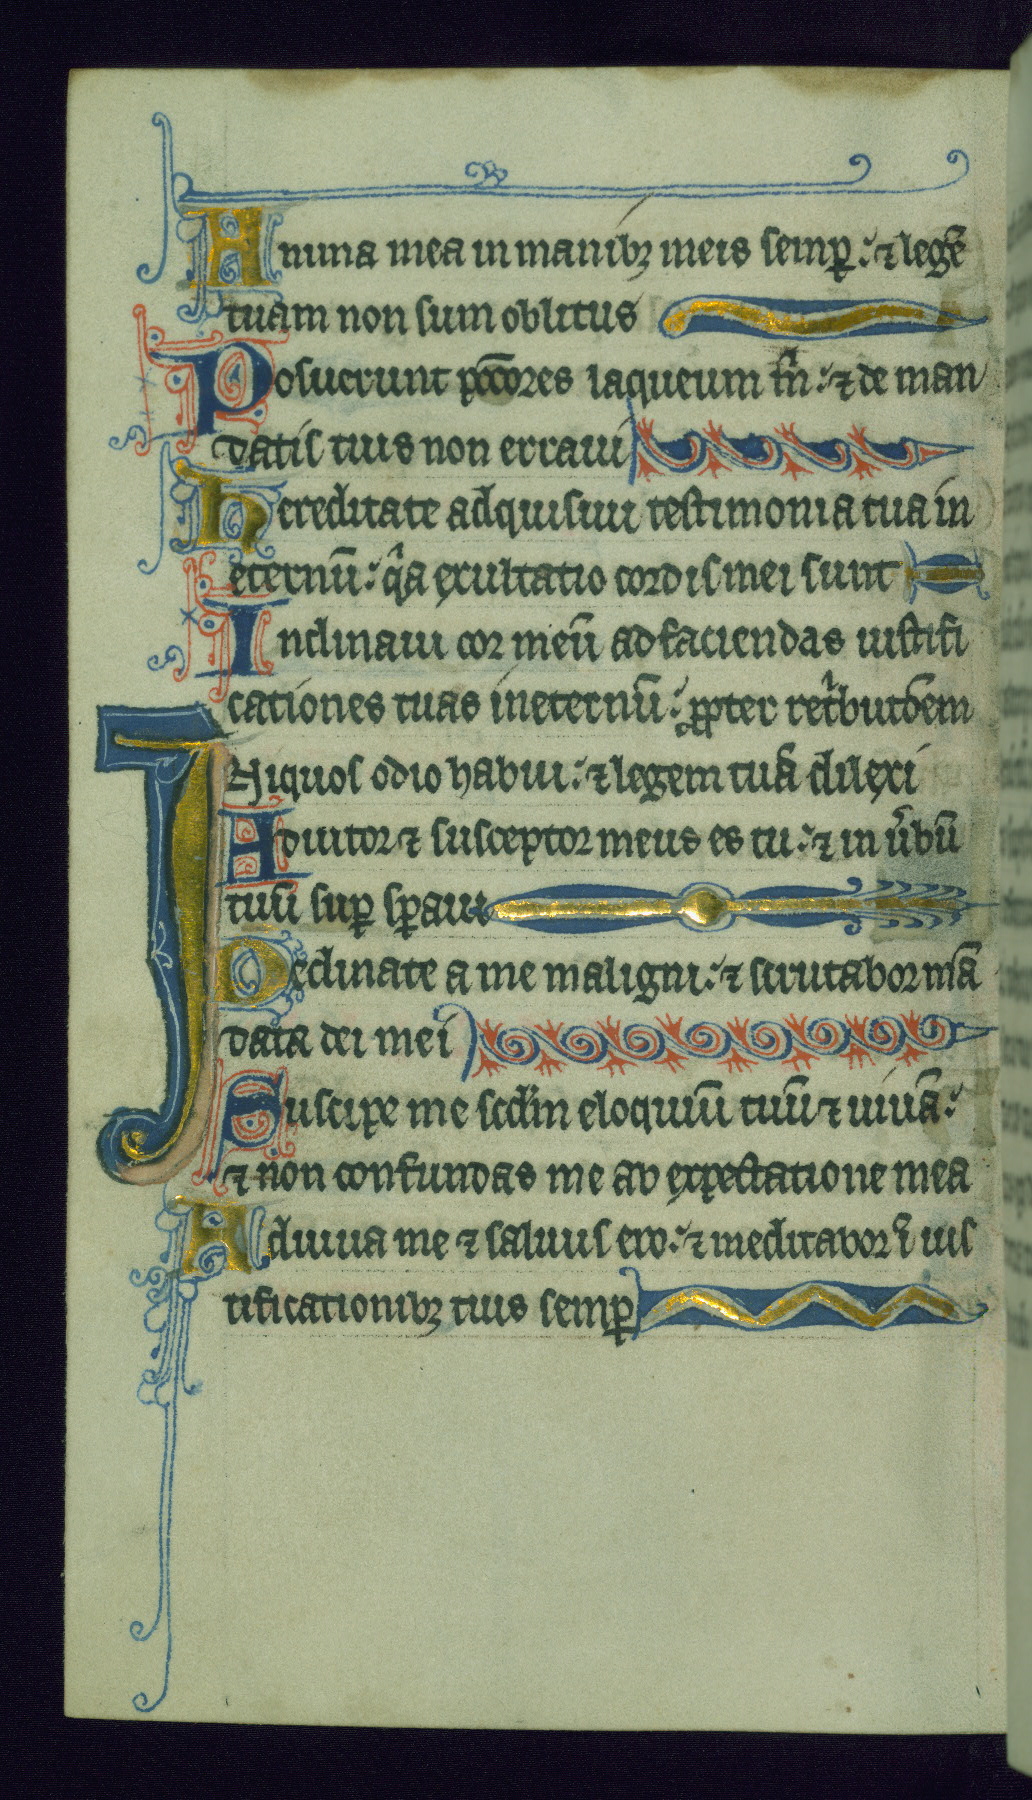 Anima mea in manibꝫ meis semꝑ: ⁊ legē
tuam non sum oblitus
Posuerunt pcc̄ores laqueum m̄: ⁊ de man
datis tuis non erraui
hereditate adquisiui testimonia tua in
eternū: qͥa exultatio cordis mei sunt
Inclinaui cor meū ad faciendas iustifi
cationes tuas in eternū: ꝓpter retͥbutōem
Iniquos odio habui: ⁊ legem tuā dilexi
Adiutor ⁊ susceptor meus es tu: ⁊ in u̾bū
tuū suꝑ sꝑaui
Declinate a me maligni: ⁊ scrutabor mā
data dei mei
Suscipe me scdm̄ eloquiū tuū ⁊ uiuā:
⁊ non confundas me ab expectatione mea
Adiuua me ⁊ saluus ero: ⁊ meditabor ī ius
tificationibꝫ tuis semꝑ